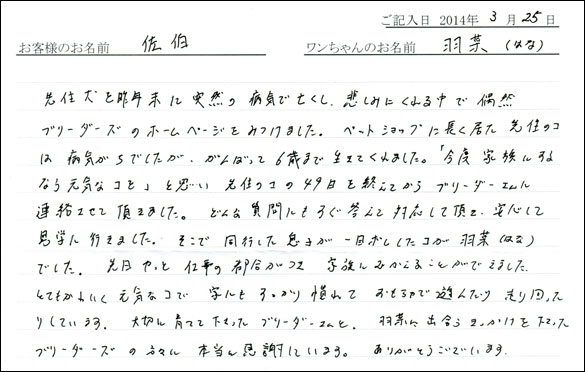 ご記入日 2014年 3月 25日
お客様のお名前 佐伯 ワンちゃんのお名前 羽菜(はな)
先住犬を昨年末に突然の病気で亡くし、悲しみにくれる中で偶然
ブリーダーズのホームページをみつけました。ペットショップに長く居た先住のコ
は病気がちでしたが、がんばって6歳まで生きてくれました。「今度家族にする
なら元気なコを」と思い先住のコの49日を終えてからブリーダーさんに
連絡させて頂きました。どんな質問にもすぐ答えて対応して頂き、安心して
見学に行きました。そこで同行した息子が一目ボレしたコが羽菜(はな)
でした。先日やっと仕事の都合がつき家族にむかえることができました。
とてもかわいく元気なコで家にもすっかり慣れておもちゃで遊んだり走り回った
りしています。大切に育てて下さったブリーダーさんと、羽菜に出合うきっかけを下さった
ブリーダーズの方々に本当に感謝しています。ありがとうございます。